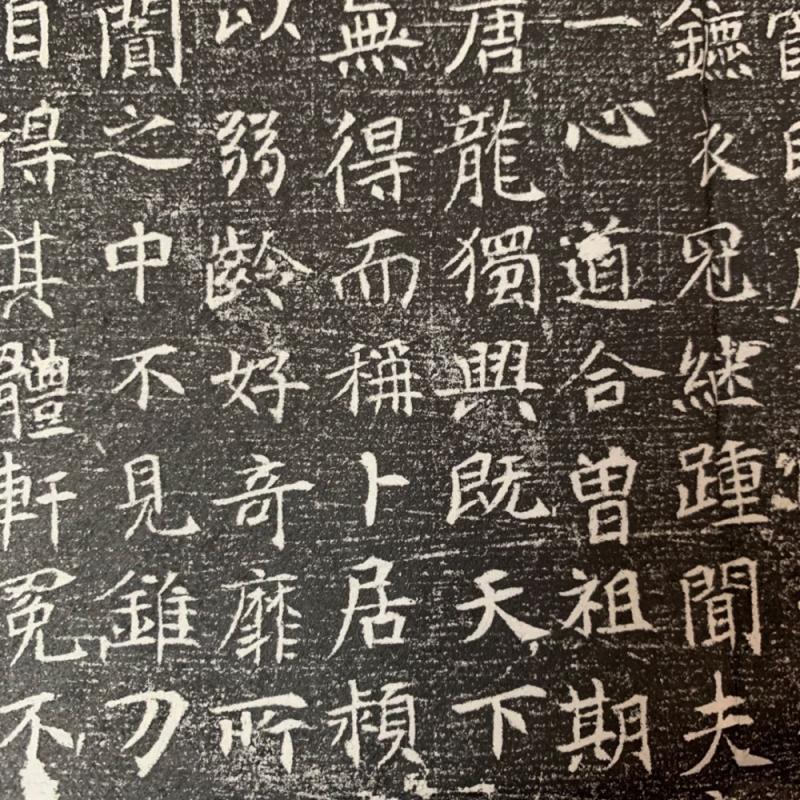 鑣衣冠継踵聞夫
一心道合曾祖期
唐龍獨興既天下
無得而稱卜居頻
以弱齡好奇靡所
闠之中不見錐刀
自得其體軒冕不